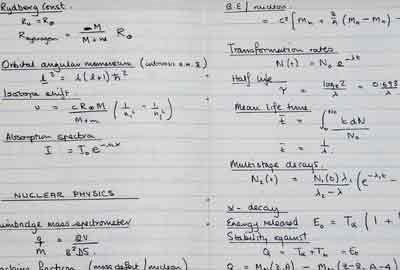 Rydberg Const.
R₀ = R∞
R_hydrogen = M / (M + m) R∞
Orbital angular momentum
l² = l(l+1)ħ²
Isotope shift.
υ = cR∞M / (M+m) (1/n₁² - 1/n₂²)
Absorption spectra
I = I₀e
NUCLEAR PHYSICS
mass spectrometer
q/m = 2V / B²DS
fraction (mass defect / nucleon)
B.E / nucleon
= c² [ Mₙ + Z/A (M_H - Mₙ) -
Transformation rates.
N(t) = N₀ e^-λt
Half life
τ = logₑ2 / λ = 0.693 / λ
Mean life time.
t̄ = ∫₀^N₀ t dN / N₀
t̄ = 1/λ
Multistage decays.
N₂(t) = N₁(0) λ₁ / (λ₂ - λ₁) (e^-λ₁t -
α - decay
Energy released E₀ = Tα (1 +
Stability against
Q = Tα + T_b = E₀
Q = (Z, A) - (Z-2, A-4)